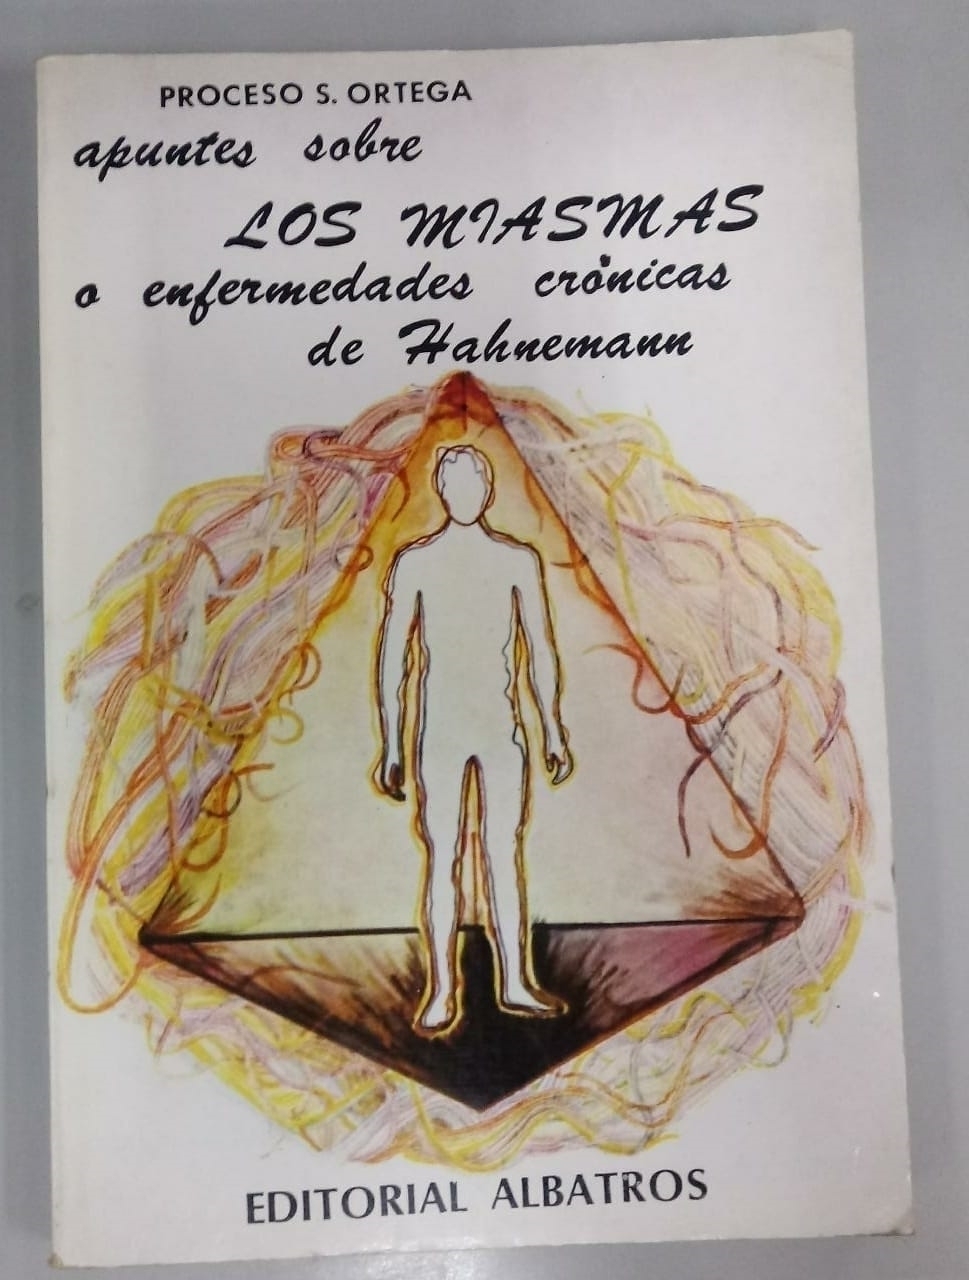 PROCESO S. ORTEGA
apuntes sobre
LOS MIASMAS
o enfermedades crónicas
de Hahnemann
EDITORIAL ALBATROS